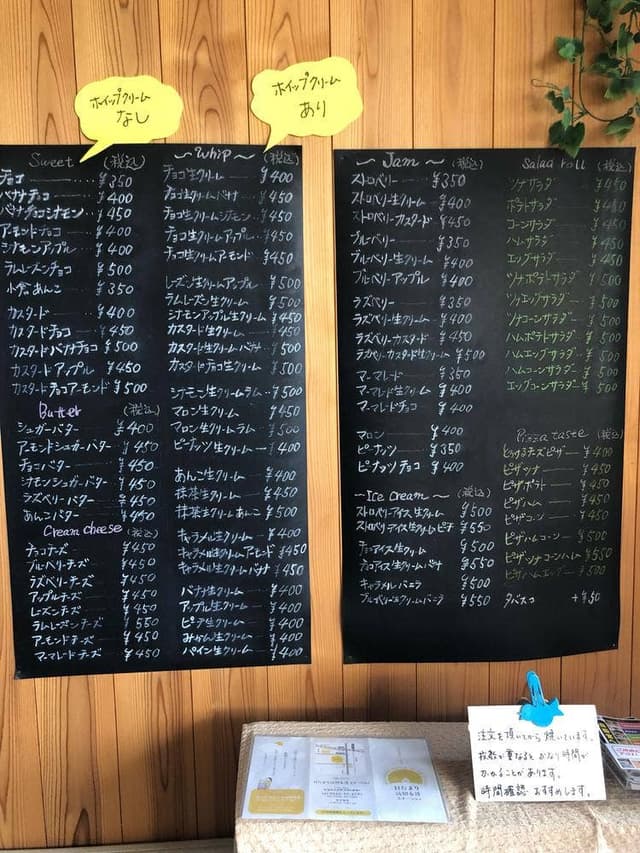 ホイップクリーム
なし
ホイップクリーム
あり
Sweet (税込)
チョコ ¥350
バナナチョコ ¥400
バナナチョコシナモン ¥450
アーモンドチョコ ¥400
シナモンアップル ¥400
ラムレーズンチョコ ¥500
小倉あんこ ¥350
カスタード ¥400
カスタードチョコ ¥450
カスタードバナナチョコ ¥500
カスタードアップル ¥450
カスタードチョコアーモンド ¥500
Butter (税込)
シュガーバター ¥400
アーモンドシュガーバター ¥450
チョコバター ¥450
シナモンシュガーバター ¥450
ラズベリーバター ¥450
あんこバター ¥450
Cream cheese (税込)
チョコチーズ ¥450
ブルベリーチーズ ¥450
ラズベリーチーズ ¥450
アップルチーズ ¥450
レーズンチーズ ¥450
ラムレーズンチーズ ¥550
アーモンドチーズ ¥450
マーマレードチーズ ¥450
～Whip～ (税込)
チョコ生クリーム ¥400
チョコ生クリームバナナ ¥450
チョコ生クリームシナモン ¥450
チョコ生クリームアップル ¥450
チョコ生クリームアーモンド ¥450
レーズン生クリームアップル ¥500
ラムレーズン生クリーム ¥500
シナモンアップル生クリーム ¥450
カスタード生クリーム ¥450
カスタード生クリームバナナ ¥500
カスタード生クリームチョコ ¥500
シナモン生クリームラム ¥500
マロン生クリーム ¥450
マロン生クリームラム ¥500
ピーナッツ生クリーム ¥400
あんこ生クリーム ¥400
抹茶生クリーム ¥400
抹茶生クリームあんこ ¥500
キャラメル生クリーム ¥400
キャラメル生クリームアーモンド ¥450
キャラメル生クリームバナナ ¥450
バナナ生クリーム ¥400
アップル生クリーム ¥400
ピーチ生クリーム ¥400
みかん生クリーム ¥400
パイン生クリーム ¥400
～Jam～ (税込)
ストロベリー ¥350
ストロベリー生クリーム ¥400
ストロベリーカスタード ¥450
ブルーベリー ¥350
ブルーベリー生クリーム ¥400
ブルーベリーアップル ¥400
ラズベリー ¥350
ラズベリー生クリーム ¥400
ラズベリーカスタード ¥450
ラズベリーカスタード生クリーム ¥500
マーマレード ¥350
マーマレード生クリーム ¥400
マーマレードチョコ ¥400
マロン ¥400
ピーナッツ ¥350
ピーナッツチョコ ¥400
～Ice cream～ (税込)
ストロベリーアイス生クリーム ¥500
ストロベリーアイス生クリームピーチ ¥550
チョコアイス生クリーム ¥500
チョコアイス生クリームバナナ ¥550
キャラメルバニラ ¥500
ブルーベリー生クリームバニラ ¥550
Salad roll (税込)
ツナサラダ ¥450
ポテトサラダ ¥450
コーンサラダ ¥450
ハムサラダ ¥450
エッグサラダ ¥450
ツナポテトサラダ ¥500
ツナエッグサラダ ¥500
ツナコーンサラダ ¥500
ハムポテトサラダ ¥500
ハムエッグサラダ ¥500
ハムコーンサラダ ¥500
エッグコーンサラダ ¥500
Pizza taste (税込)
とろけるチーズピザー ¥400
ピザツナ ¥450
ピザポテト ¥450
ピザハム ¥450
ピザコーン ¥450
ピザハムコーン ¥500
ピザツナコーンハム ¥550
ピザハムエッグ ¥500
タバスコ +¥50
注文を頂いてから焼いています。
枚数が重なると かなり時間が
かかることがあります。
時間確認 おすすめします。